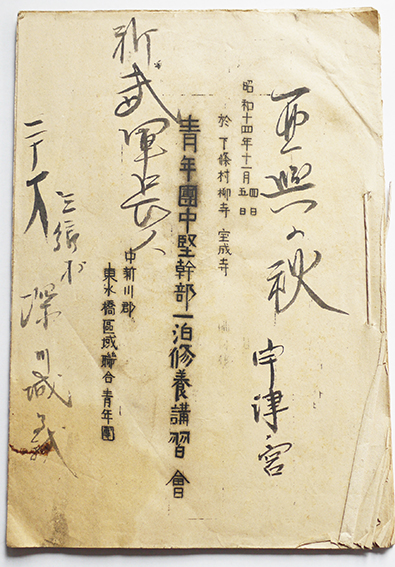 の秋
宇津宮
昭和十四年十一月四日
五日
於 下條村柳寺 室成寺
青年團中堅幹部一泊修養講習會
中新川郡
東水橋區域聯合青年團
祈武
長久
深川城義